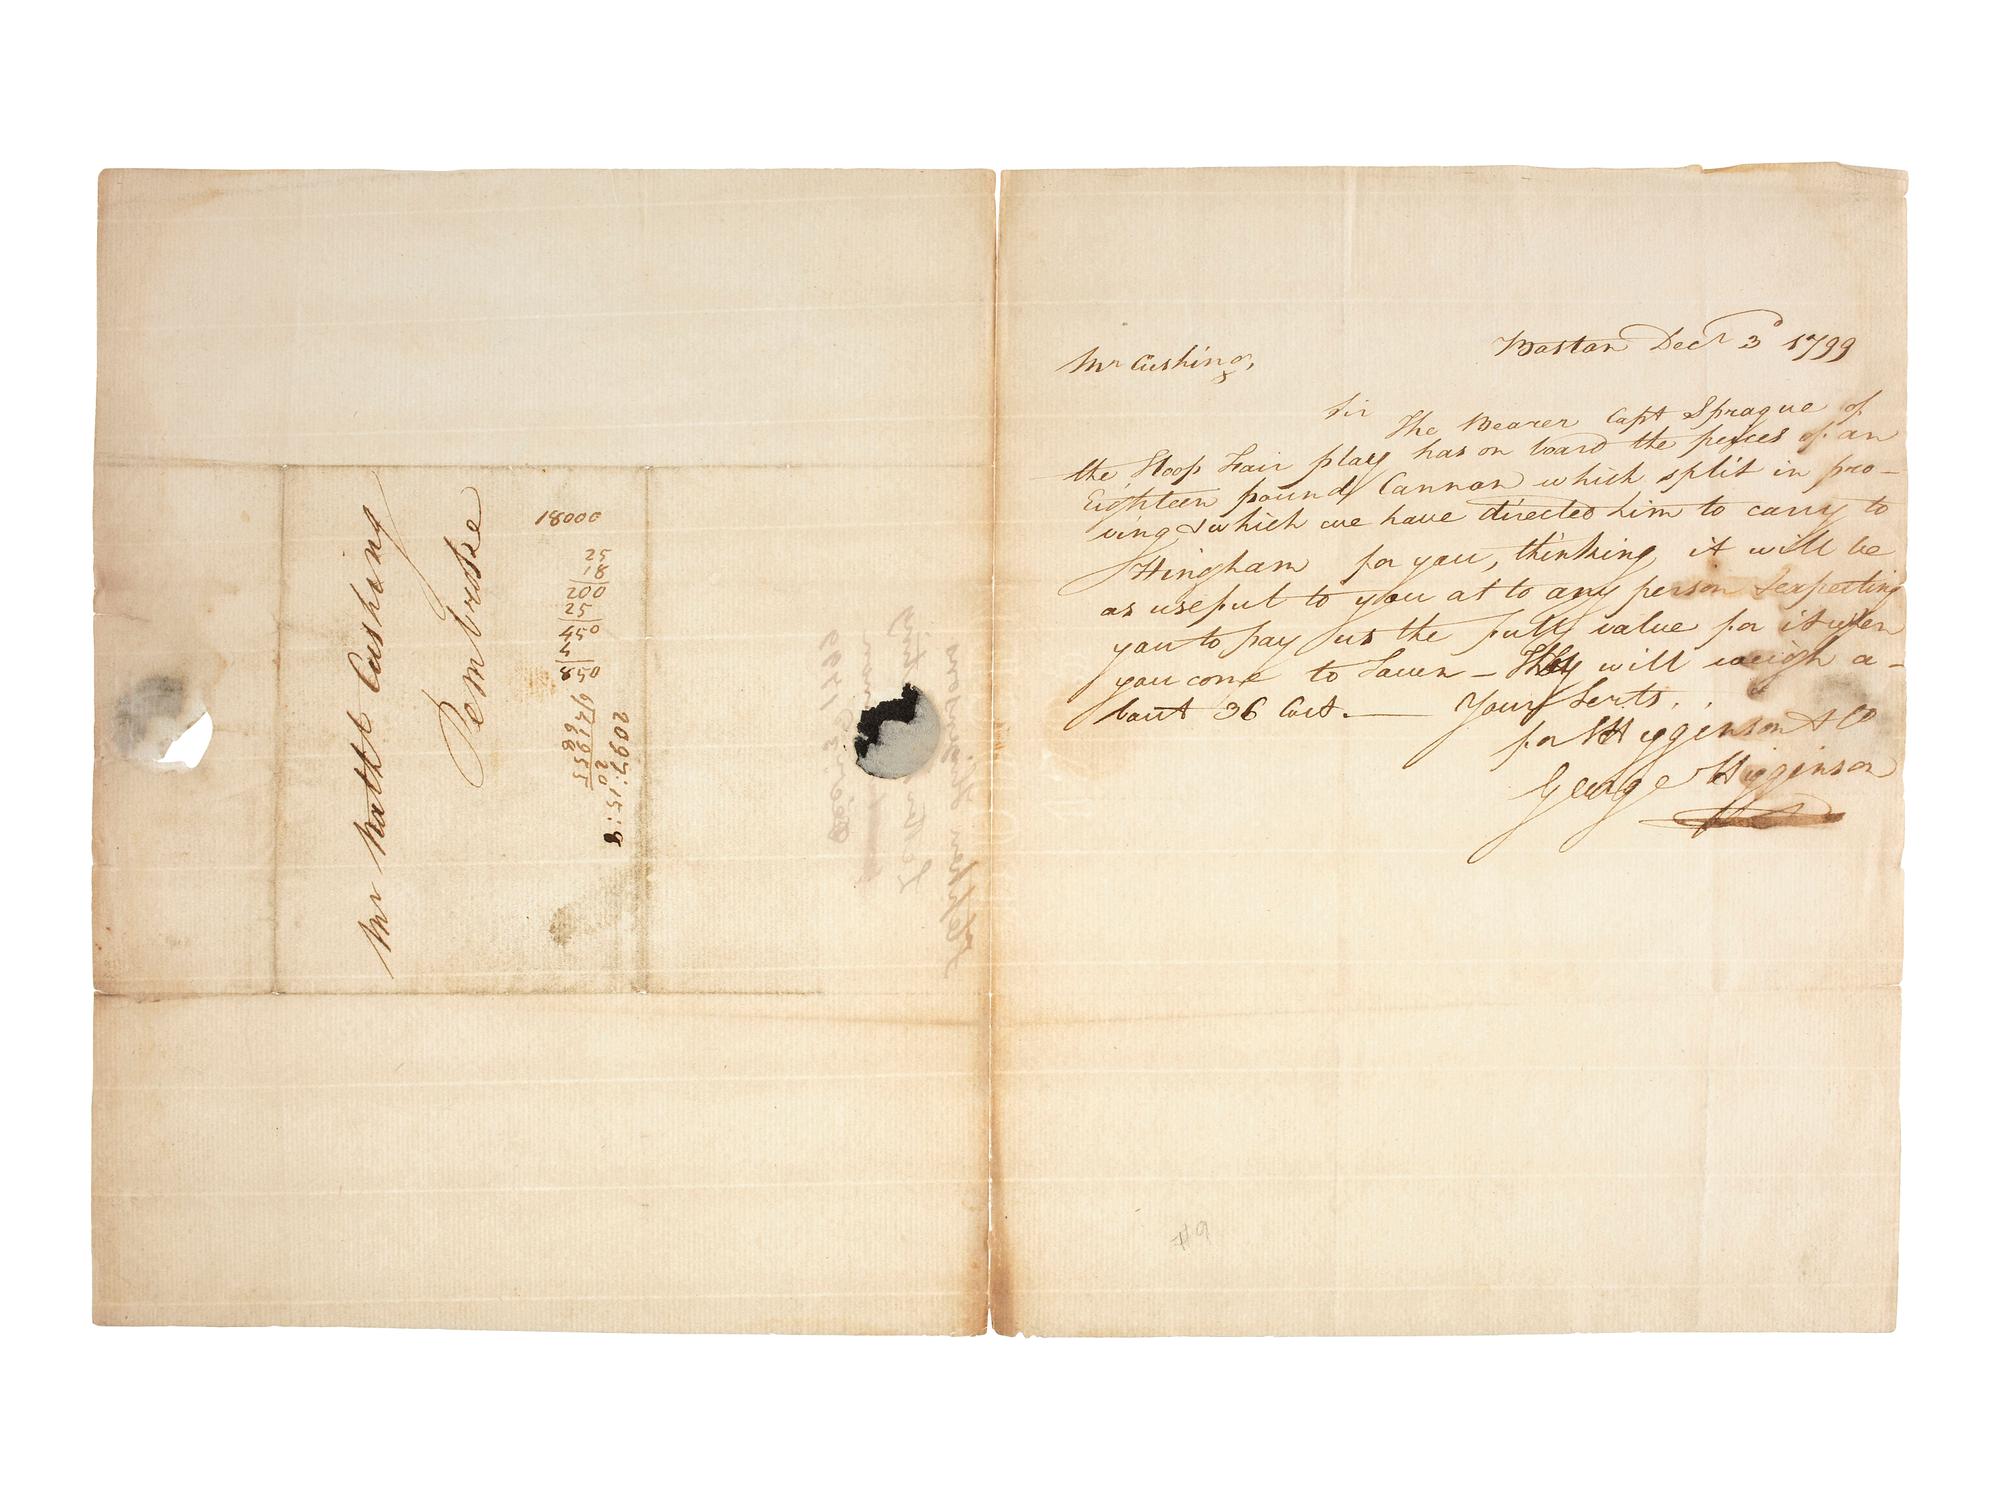 Mr Nathl Cushing
Pembroke
18000
25
18
200
25
450
4
850
2097:15:8
20
Boston Decr 3d 1799
Mr Cushing,
Sir The Bearer Capt Sprague of
the Sloop Fair play has on board the peices of an
Eighteen pound Cannon which split in pro-
ving & which we have directed him to carry to
Hingham for you, thinking it will be
as useful to you as to any person & expecting
you to pay us the full value for it when
you come to Town - They will weigh a-
bout 36 Cwt. — Your Servts,
for S Higginson & Co
George Higginson
#9